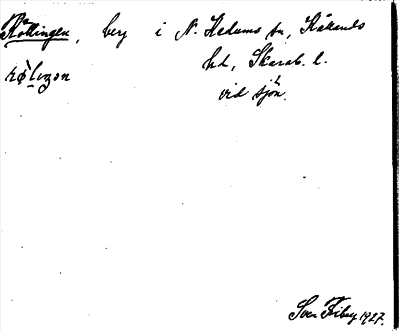 Röttingen, berg i N. Hedums sn, Kåkands
hd, Skarab. l.
vid sjön.
Sven Friberg 1927.